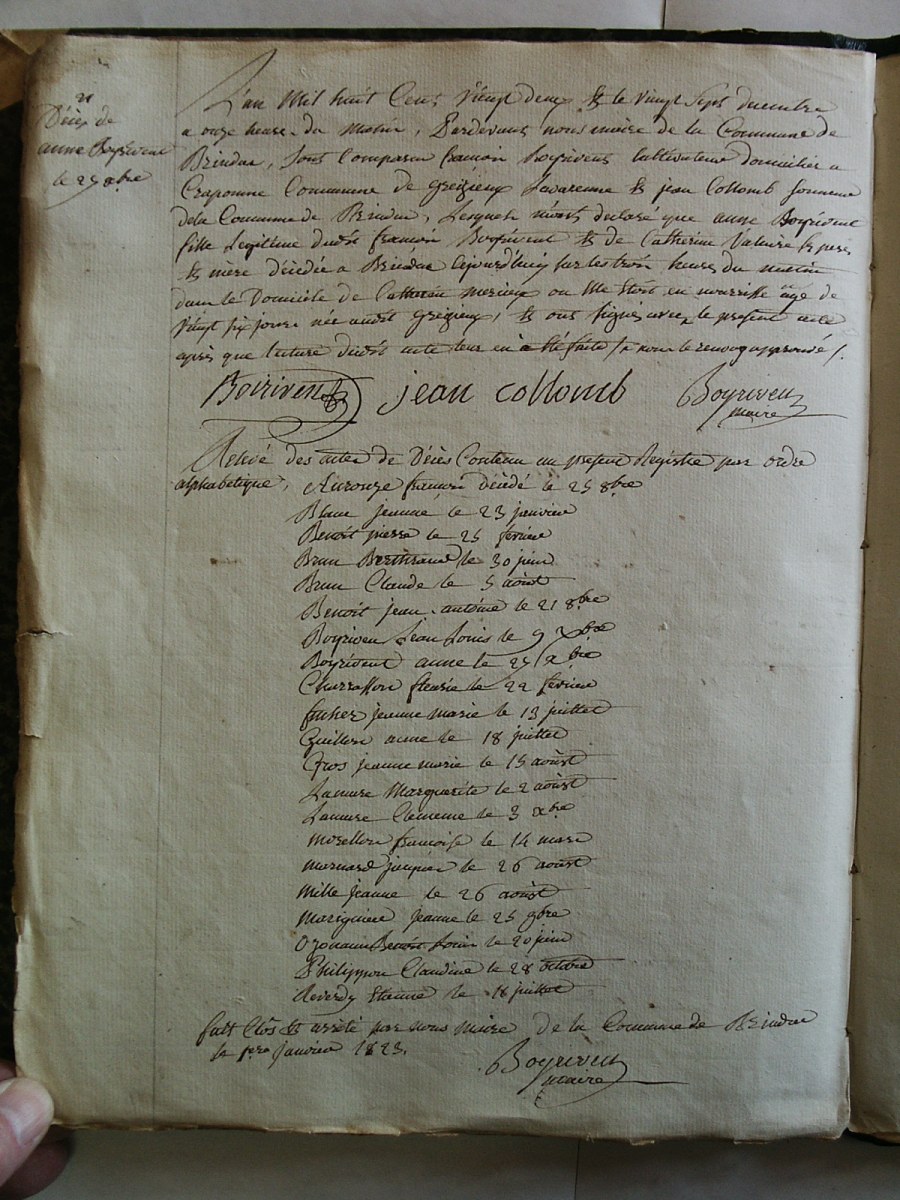 21
Décès de
anne Boyrivent
le 27 xbre
L'an Mil huit Cent vingt deux & le vingt Sept decembre
a onze heures du matin, Pardevant nous maire de la Commune de
Brindas, Sont Comparus francois Boyrivent Cultivateur domicilié a
Craponne Commune de grézieux Lavarenne & jean Collomb
dela Commune de Brindas, Lesquels m'ont declaré que anne Boyrivent
fille Legitime dudit francois Boyrivent & de Catherine & pere
& mère décédée a Brindas aujourd'huy sur les trois heures du matin
dans le Domicile de Catherine ou elle étoit en nourrisse agé de
vingt six jours née audit grézieux, & ont signés avec le present acte
après que lecture dudit acte leur en a été faite
Boiriven jean collomb Boyriven
maire
Relevé des actes de Décès Contenu au present Registre par ordre
alphabetique, Aurouze francois décédé le 25 8bre
Blanc jeanne le 23 janvier
Benoit pierre le 25 fevrier
Brun Berthrand le 30 juin
Brun Claude le 5 août
Benoit jean antoine le 21 8bre
Boyriven Jean Louis le 9 Xbre
Boyrivent anne le 27 xbre
fleurie le 22 fevrier
jeanne marie le 13 juillet
Guillon anne le 18 juillet
Gros jeanne marie le 15 août
Lamure Marguerite le 2 août
Lamure Clemence le 3 xbre
morellon francoise le 14 mars
le 26 août
Mille jeanne le 26 août
jeanne le 25 9bre
Benoit Louis le 20 juin
Philippon Claudine le 28 octobre
Reverdy Etienne le 18 juillet
fait Clos & arrêté par nous maire de la Commune de Brindas
le 1er Janvier 1823.
Boyriven
maire